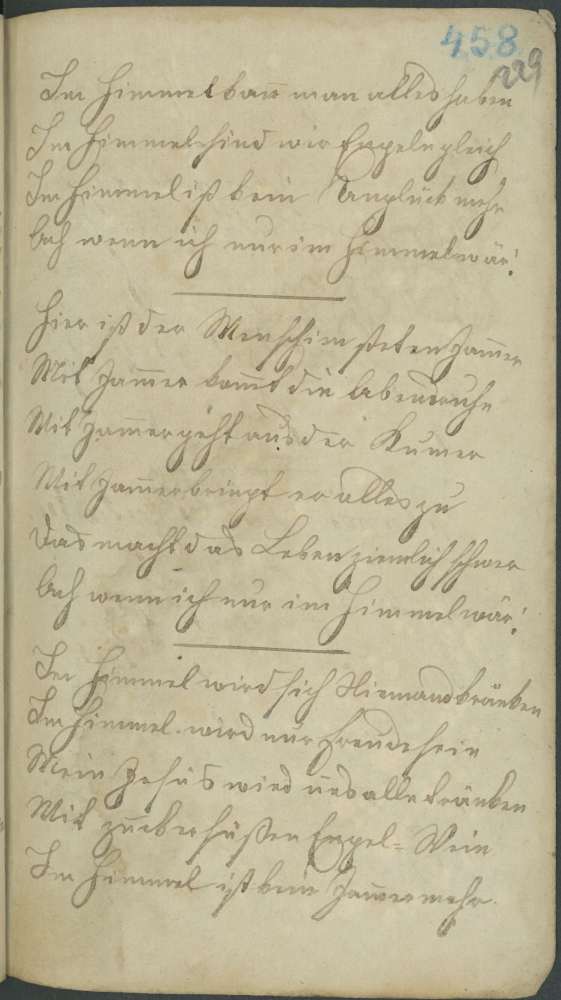 458
229
Im Himmel kan̄ man alles haben
Im Himmel sind wir Engeln gleich
Im Himmel iß kein Unglück mehr
Ach wenn ich nur im Himmel wär!
Hier iß der Mensch im steten Jam̄er
Mit Jam̄er kom̄t die Abendruhe
Mit Jam̄er geht aus der Kum̄er
Mit Jam̄er bringt er alles zu
Das macht das Leben ziemlich schwer
Ach wenn ich nur im Himmel wär!
Im Himmel wird sich Niemand kränken
Im Himmel wird nur Freude sein
Mein Jesus wird uns alle tränken
Mit zuckersüßen Engel-Wein
Im Himmel ist kein Jam̄er mehr.